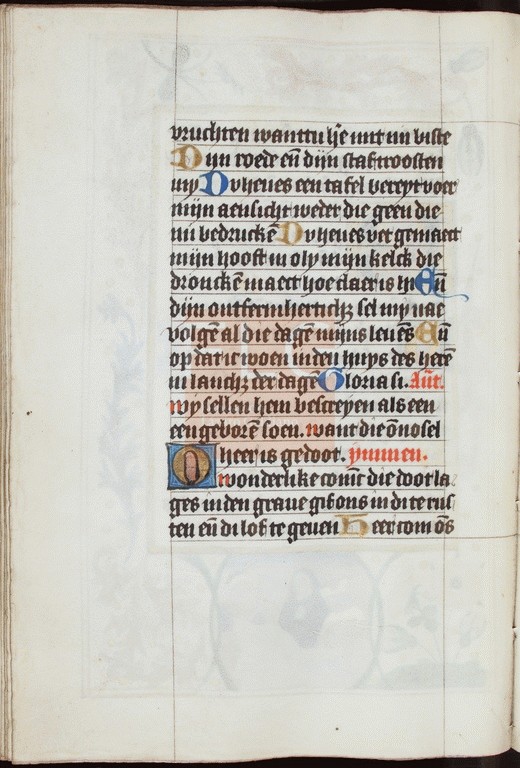 vruchten wanttu hē mit mi biste
Dijn roede eñ dijn staf troosten
mij Du heues een tafel bereyt voer
mijn aensicht weder die geen die
mi bedruckē Du heues vet gemaect
mijn hooft in oly mijn kelck die
dronckē maect hoe claer is hi Eñ
dijn ontfermherticħʒ sel mij nae
volgē al die dagē mijns leuēs Eñ
op dat ic woen inden huys des herē
in lancħʒ der dagē Gloria si. Añt.
wy sellen hem bescreyen als een
een geborē soen. want die ōnosel
heer is gedoot. ymmen.
O wonderlike conīc die doot la
ges inden graue gif ons in di te rus
ten eñ di lof te geuen Heer com ōs